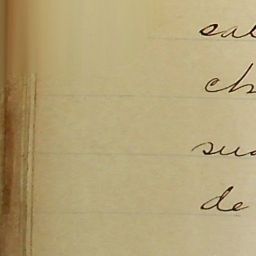 sal
ch
sua
de